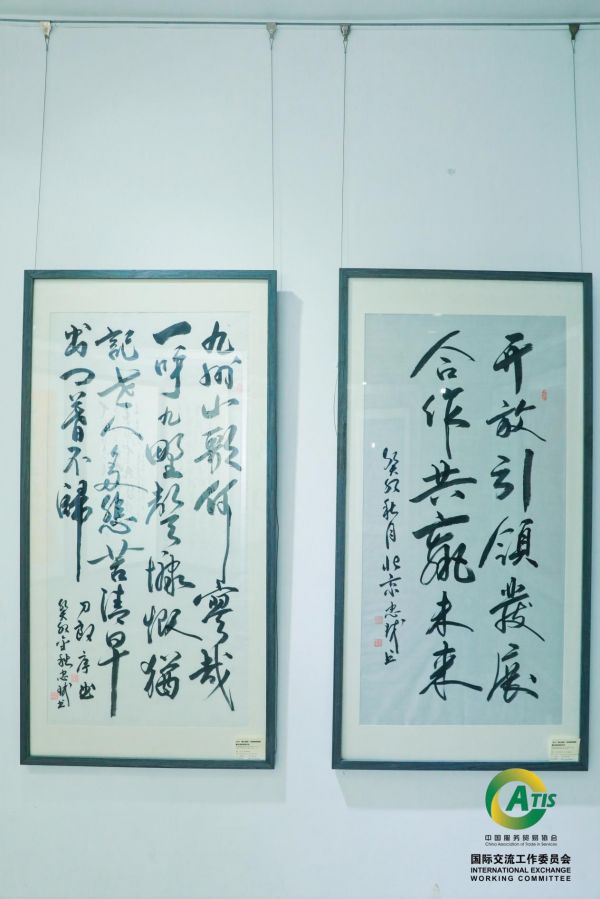 九州山歌何寥哉
一呼九野聲慷慨猶
記世人多悲苦清早
出门暮不歸
刀郎序曲
癸卯金秋忠斌书
开放引領發展
合作共赢未来
癸卯秋月北京忠斌书
ATIS
中国服务贸易协会
China Association of Trade in Services
国际交流工作委员会
INTERNATIONAL EXCHANGE
WORKING COMMITTEE